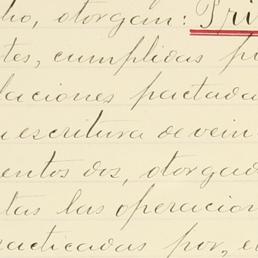 ho, otorgan: Pri
tes, cumplidas p
laciones pactada
a escritura de vein
entos dos, otorgad
tas las operacion
racticadas por, e